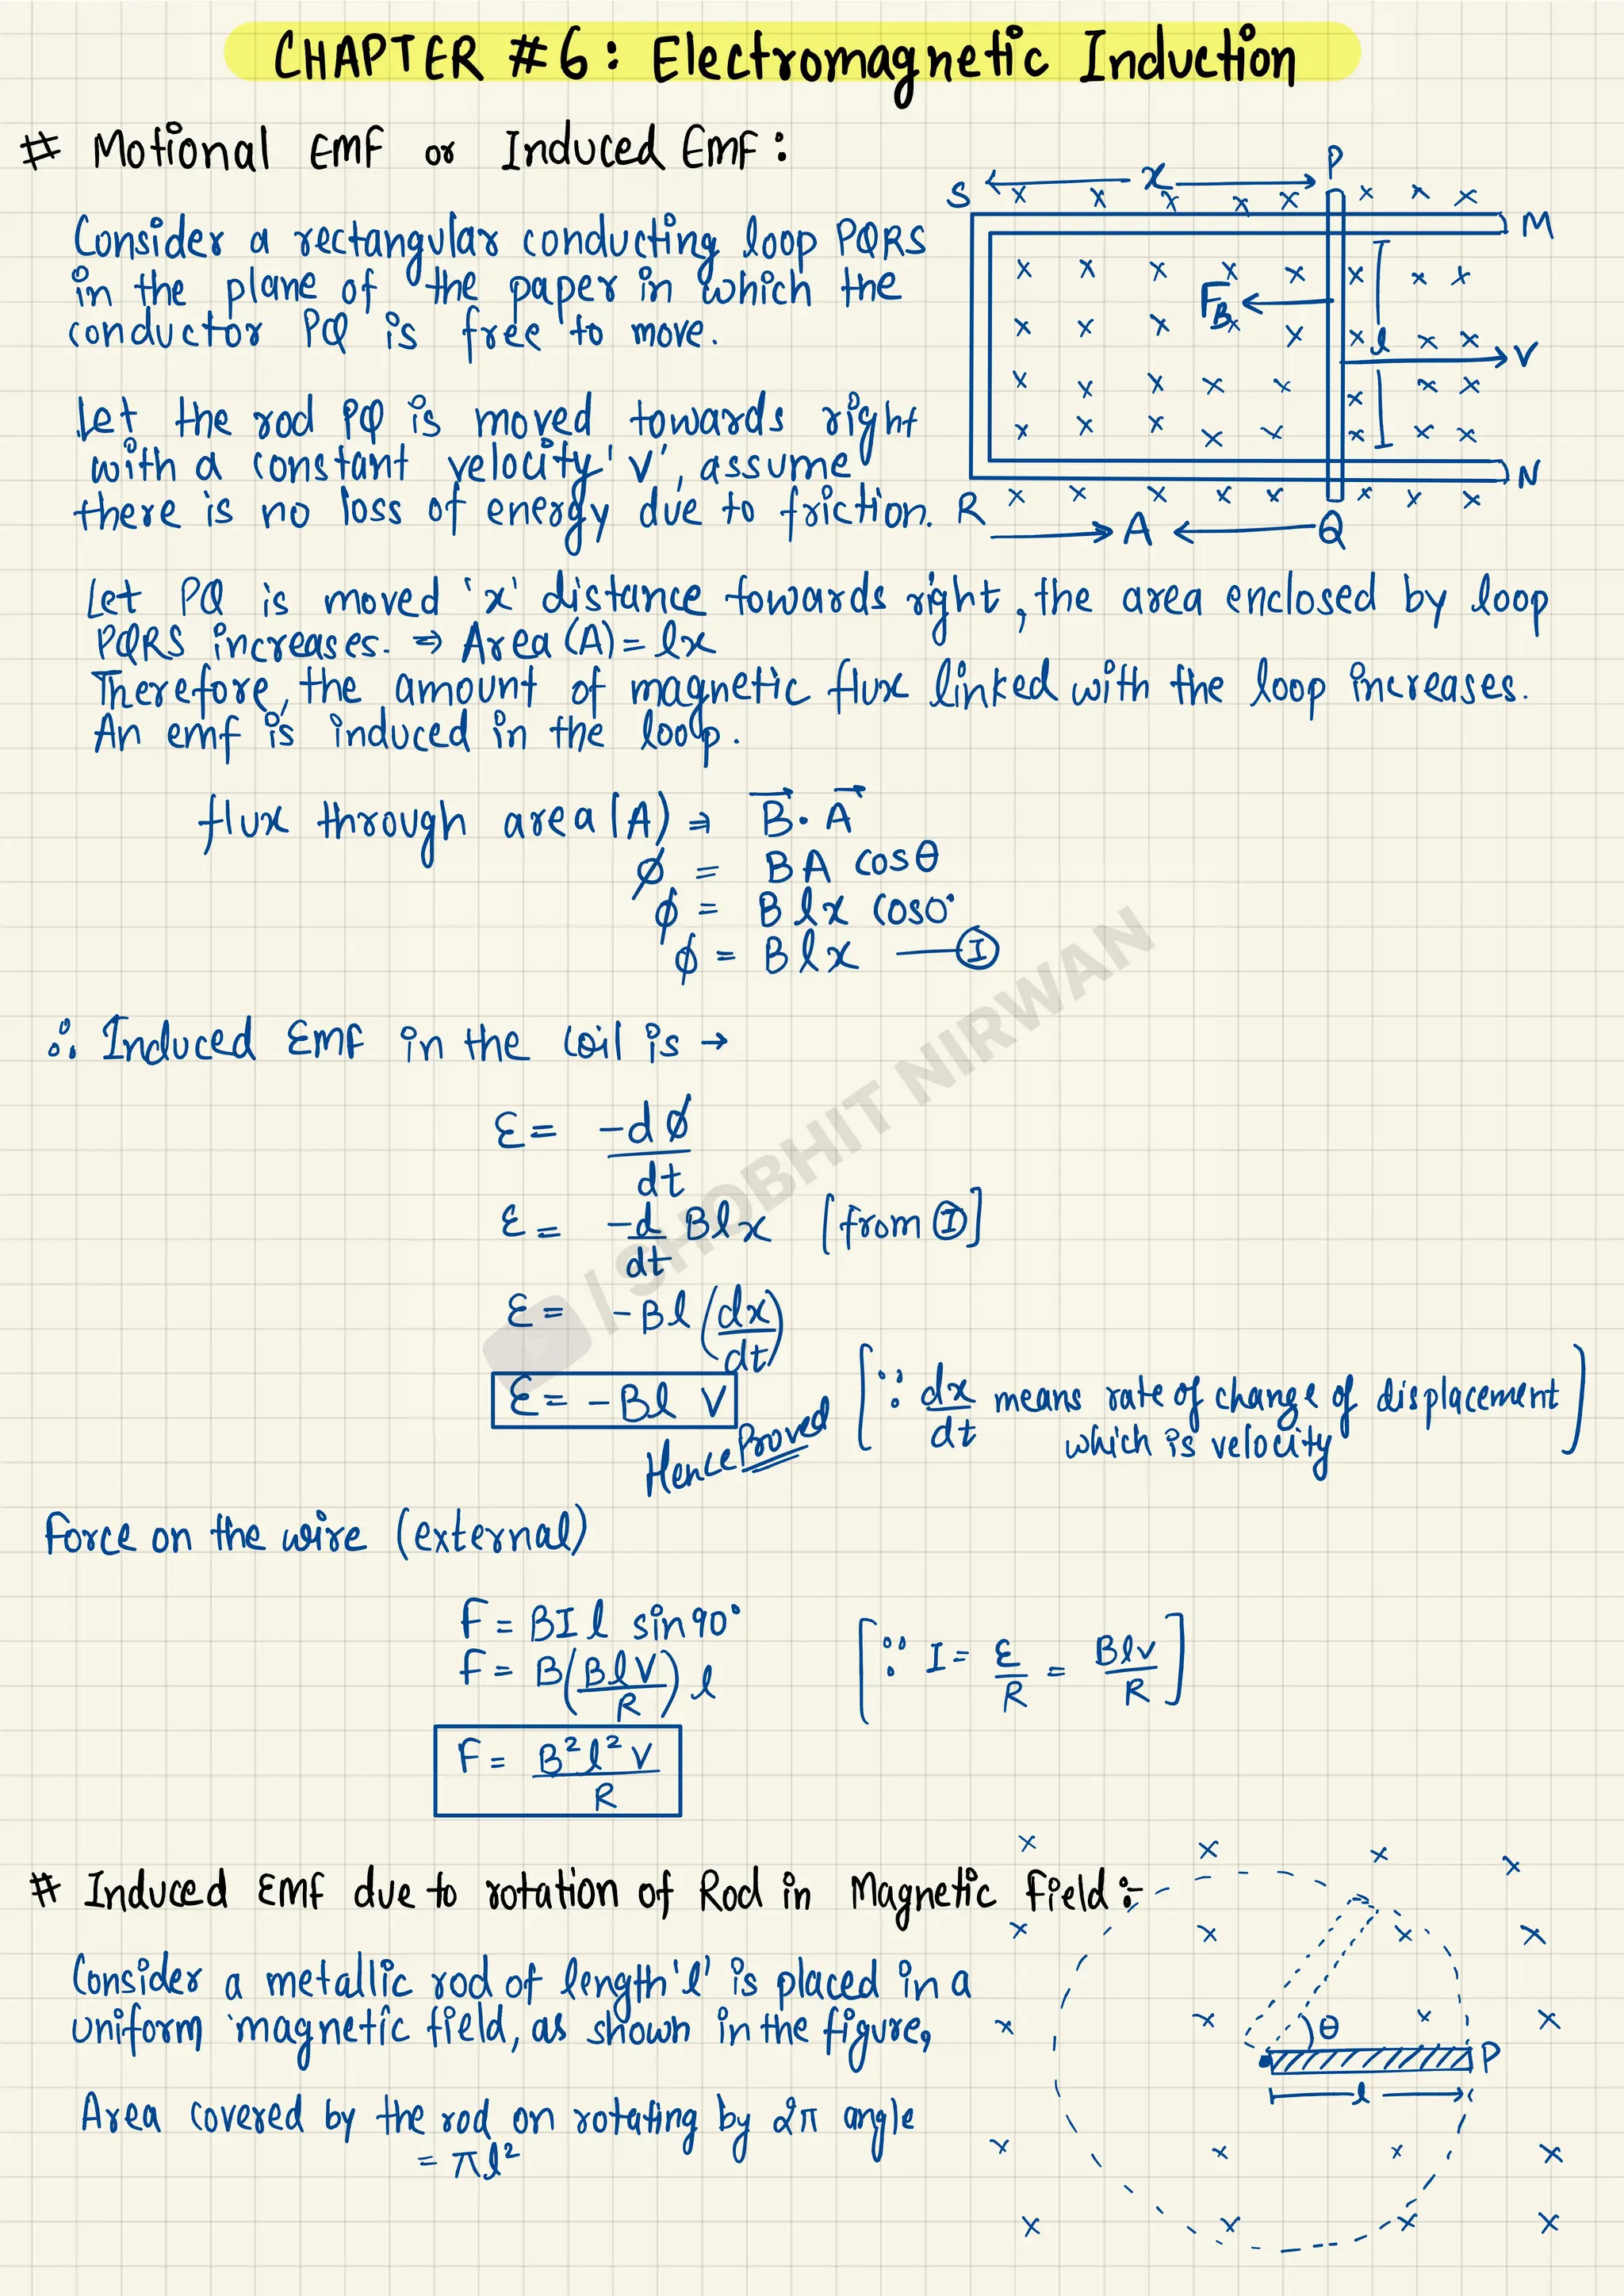 CHAPTER #6: Electromagnetic Induction
# Motional EMF or Induced EMF:
Consider a rectangular conducting loop PQRS
in the plane of the paper in which the
conductor PQ is free to move.
Let the rod PQ is moved towards right
with a constant velocity 'v', assume
there is no loss of energy due to friction.
S x P
M
F_B
l
V
N
R A Q
Let PQ is moved 'x' distance towards right, the area enclosed by loop
PQRS increases. ⇒ Area (A) = lx
Therefore, the amount of magnetic flux linked with the loop increases.
An emf is induced in the loop.
flux through area (A) ⇒ B⃗ · A⃗
ϕ = BA cosθ
ϕ = Blx cos0°
ϕ = Blx —— Ⓘ
∴ Induced EMF in the coil is →
ε = -dϕ/dt
ε = -d/dt Blx [from Ⓘ]
ε = -Bl (dx/dt)
ε = -Bl V
Hence Proved
[∵ dx/dt means rate of change of displacement
which is velocity]
Force on the wire (external)
F = BIl sin90°
F = B(BlV/R) l [∵ I = ε/R = Blv/R]
F = B²l²V/R
# Induced EMF due to rotation of Rod in Magnetic Field :-
Consider a metallic rod of length 'l' is placed in a
uniform magnetic field, as shown in the figure,
Area covered by the rod on rotating by 2π angle
= πl²
θ
P
l
/ SHOBHIT NIRWAN